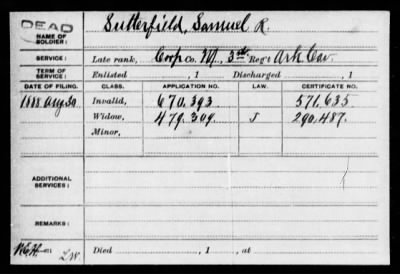 DEAD
NAME OF SOLDIER: Sutterfield, Samuel R.
SERVICE: Late rank, Corp Co. M, 3rd Reg't Ark Cav.
TERM OF SERVICE: Enlisted , 1 Discharged , 1
DATE OF FILING. CLASS. APPLICATION NO. LAW. CERTIFICATE NO.
1888 Aug 30 Invalid, 670.393 571.635
Widow, 479.309 J 290.487.
Minor,
ADDITIONAL SERVICES:
REMARKS:
Died , 1 , at